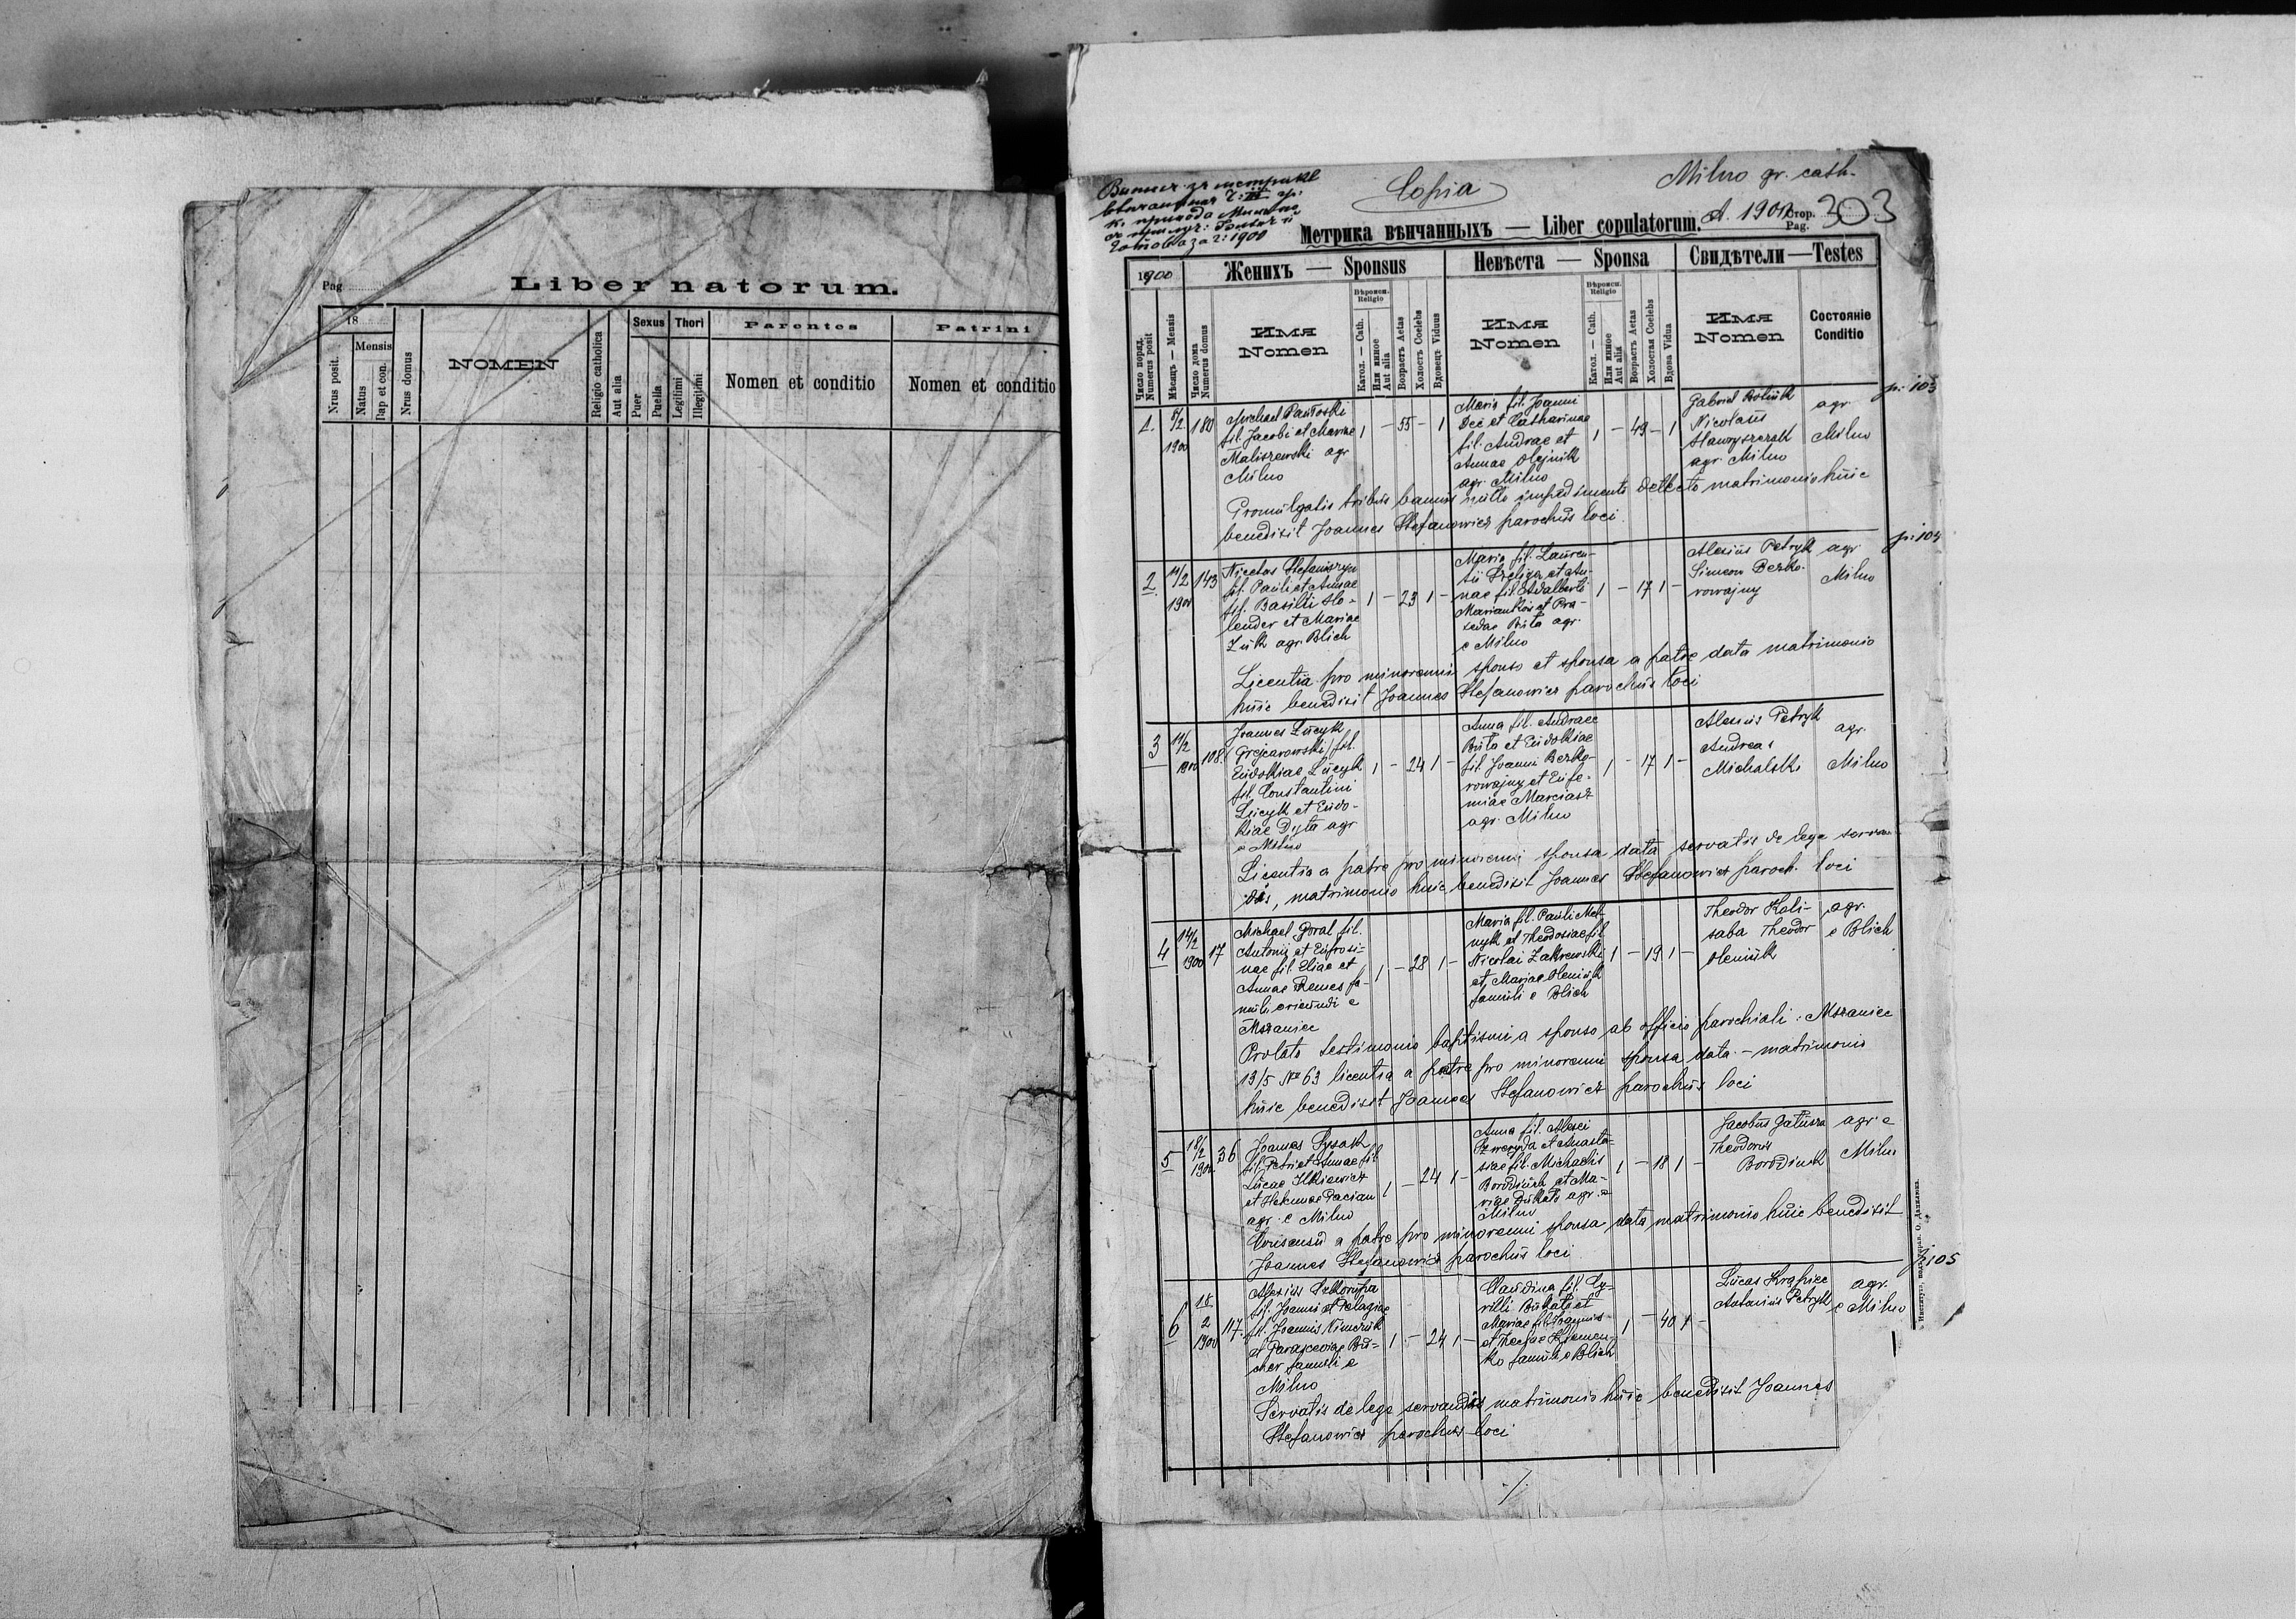 Pag.
Liber natorum.
18
Nrus posit.
Mensis
Natus
Bap et con.
Nrus domus
NOMEN
Religio catholica
Aut alia
Sexus
Puer
Puella
Thori
Legitimi
Illegitimi
Parentes
Nomen et conditio
Patrini
Nomen et conditio
Milno gr. cath.
Copia
Метрика вѣнчанныхъ — Liber copulatorum.
A. 1900 Стор. Pag. 303
1900
Женихъ — Sponsus
Невѣста — Sponsa
Свидѣтели — Testes
Число поряд. Numerus posit
Мѣсяцъ — Mensis
Число дома Numerus domus
Имя Nomen
Вѣроисп. Religio
Катол. — Cath.
Или инное Aut alia
Возрастъ Aetas
Холостъ Coelebs
Вдовецъ Viduus
Имя Nomen
Вѣроисп. Religio
Катол. — Cath.
Или инное Aut alia
Возрастъ Aetas
Холостая Coelebs
Вдова Vidua
Имя Nomen
Состояніе Conditio
p: 103
1. 1900 180
Michael
fil. Jacobi et Mariae
Maliszewski agr
Milno
1 - 55 - 1
Maria fil. Joanni
Dec et Catharinae
fil. Andrae et
Annae Olejnik
agr. Milno
1 - 49 - 1
Gabriel
Nicolaus
agr. Milno
agr.
Milno
Promulgatis tribus bannis nullo impedimento detecto matrimonio huic
benedixit Joannes Stefanowicz parochus loci
p: 104
2. 11/2 1900 143
Nicetas Stefaniszyn
fil. Pauli et Annae
fil. Basilii Ho-
lender et Mariae
Zuk agr. Blich
1 - 23 1 -
Maria fil. Lauren-
tii et An-
nae fil. Adalberti
et Pra-
xedae Buta agr.
e Milno
1 - 17 1 -
Alexius Petryk
Simeon Bezko-
rowajny
agr
Milno
Licentia pro minorenni sponso et sponsa a patre data matrimonio
huic benedixit Joannes Stefanowicz parochus loci
3 11/2 1900 108
Joannes Łucyk
fil.
Eudokiae Łucyk
fil. Constantini
Łucyk et Eudo-
kiae Dyta agr
e Milno
1 - 24 1 -
Anna fil. Andraee
Buta et Eudokiae
fil Joanni Bezko-
rowajny et Eufe-
miae Marciasz
agr. Milno
1 - 17 1 -
Alexius Petryk
Andreas
Michalski
agr.
Milno
Licentia a patre pro minorenni sponsa data servatis de lege servan-
dis, matrimonio huic benedixit Joannes Stefanowicz paroch. loci
4 14/2 1900 17
Michael Goral fil.
Antonii et Eufrosi-
nae fil. Eliae et
Annae Remes fa-
muli oriundi e
Mszaniec
1 - 28 1 -
Maria fil. Pauli Mel-
nyk et Theodosiae fil
Nicolai Zakrewski
et Mariae Oleniuk
famuli e Blich
1 - 19 1 -
Theodor Koli-
saba Theodor
Oleniuk
agr.
e Blich
Prolato testimonio baptismi a sponso ab officio parochiali: Mszaniec
13/5 No 63 licentia a patre pro minorenni sponsa data. - matrimonio
huic benedixit Joannes Stefanowicz parochus loci
5 18/2 1900 36
Joannes Łysak
fil Petri et Annae fil
Lucae Ilkiewicz
et Helenae Pacian
agr. e Milno
1 - 24 1 -
Anna fil. Alexei
et Anasta-
siae fil. Michaelis
Borodziuk et Ma-
riae Dukata agr. e
Milno
1 - 18 1 -
Jacobus Gatusza
Theodorus
Borodiuk
agr e
Milno
Consensu a patre pro minorenni sponsa data matrimonio huic benedixit
Joannes Stefanowicz parochus loci
p: 105
6 18 2 1900 117.
Alexius
fil. Joanni et Pelagiae
fil. Joannis Nimczuk
et Parasceviae Bu-
cher famuli e
Milno
1 - 24 1 -
Claudina fil. Cy-
rilli Bukata et
Mariae fil. Joannis
et Theclae Klemen-
ko famuli e Blich
1 - 40 1 -
Lucas Krapiec
Antonius Petryk
agr.
e Milno
Servatis de lege servandis matrimonio huic benedixit Joannes
Stefanowicz parochus loci